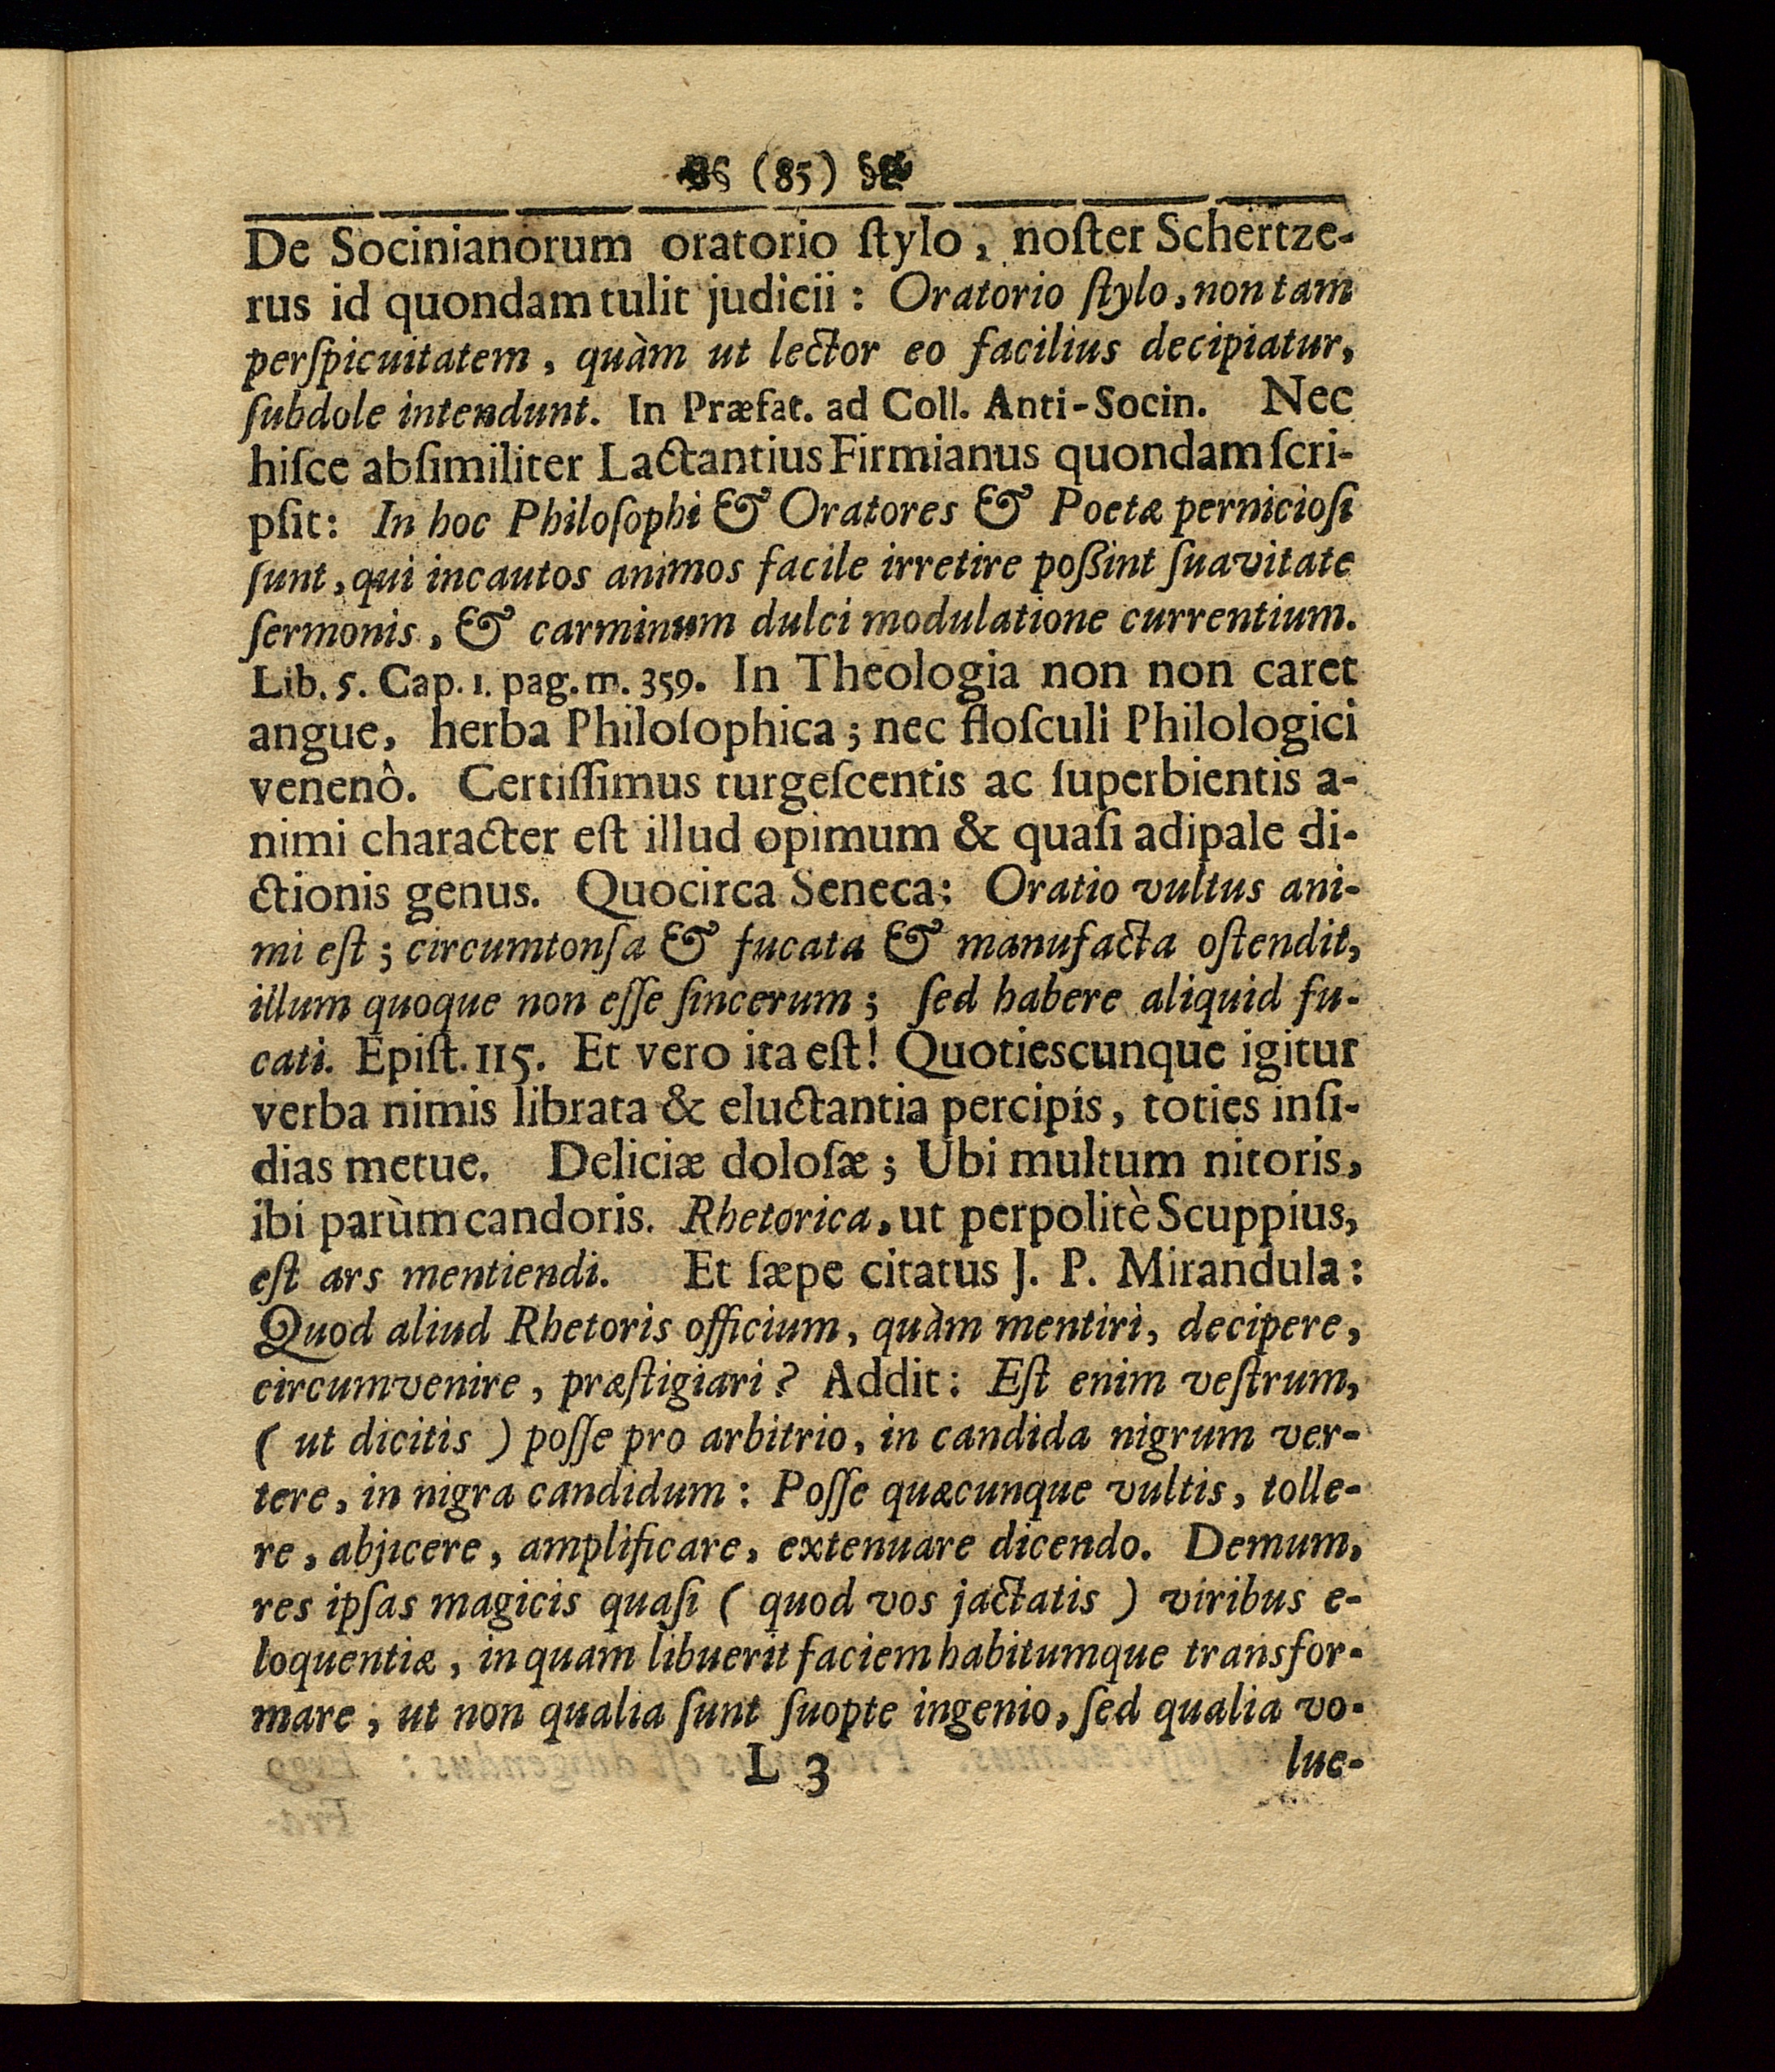 (85)
De Socinianorum oratorio ſtylo, noſter Schertze-
rus id quondam tulit judicii: Oratorio ſtylo, non tam
perſpicuitatem, quàm ut lector eo facilius decipiatur,
ſubdole intendunt. In Præfat. ad Coll. Anti-Socin. Nec
hiſce abſimiliter Lactantius Firmianus quondam ſcri-
pſit: In hoc Philoſophi & Oratores & Poetæ pernicioſi
ſunt, qui incautos animos facile irretire poßint ſuavitate
ſermonis, & carminum dulci modulatione currentium.
Lib. 5. Cap. 1. pag. m. 359. In Theologia non non caret
angue, herba Philoſophica; nec floſculi Philologici
venenô. Certiſſimus turgeſcentis ac ſuperbientis a-
nimi character eſt illud opimum & quaſi adipale di-
ctionis genus. Quocirca Seneca: Oratio vultus ani-
mi eſt; circumtonſa & fucata & manufacta oſtendit,
illum quoque non eſſe ſincerum; ſed habere aliquid fu-
cati. Epiſt. 115. Et vero ita eſt! Quotiescunque igitur
verba nimis librata & eluctantia percipis, toties inſi-
dias metue. Deliciæ doloſæ; Ubi multum nitoris,
ibi parùm candoris. Rhetorica, ut perpolitè Scuppius,
eſt ars mentiendi. Et ſæpe citatus J. P. Mirandula:
Quod aliud Rhetoris officium, quàm mentiri, decipere,
circumvenire, præſtigiari? Addit: Eſt enim veſtrum,
( ut dicitis ) poſſe pro arbitrio, in candida nigrum ver-
tere, in nigra candidum: Poſſe quæcunque vultis, tolle-
re, abjicere, amplificare, extenuare dicendo. Demum,
res ipſas magicis quaſi ( quod vos jactatis ) viribus e-
loquentiæ, in quam libuerit faciem habitumque transfor-
mare, ut non qualia ſunt ſuopte ingenio, ſed qualia vo-
L 3 lue-